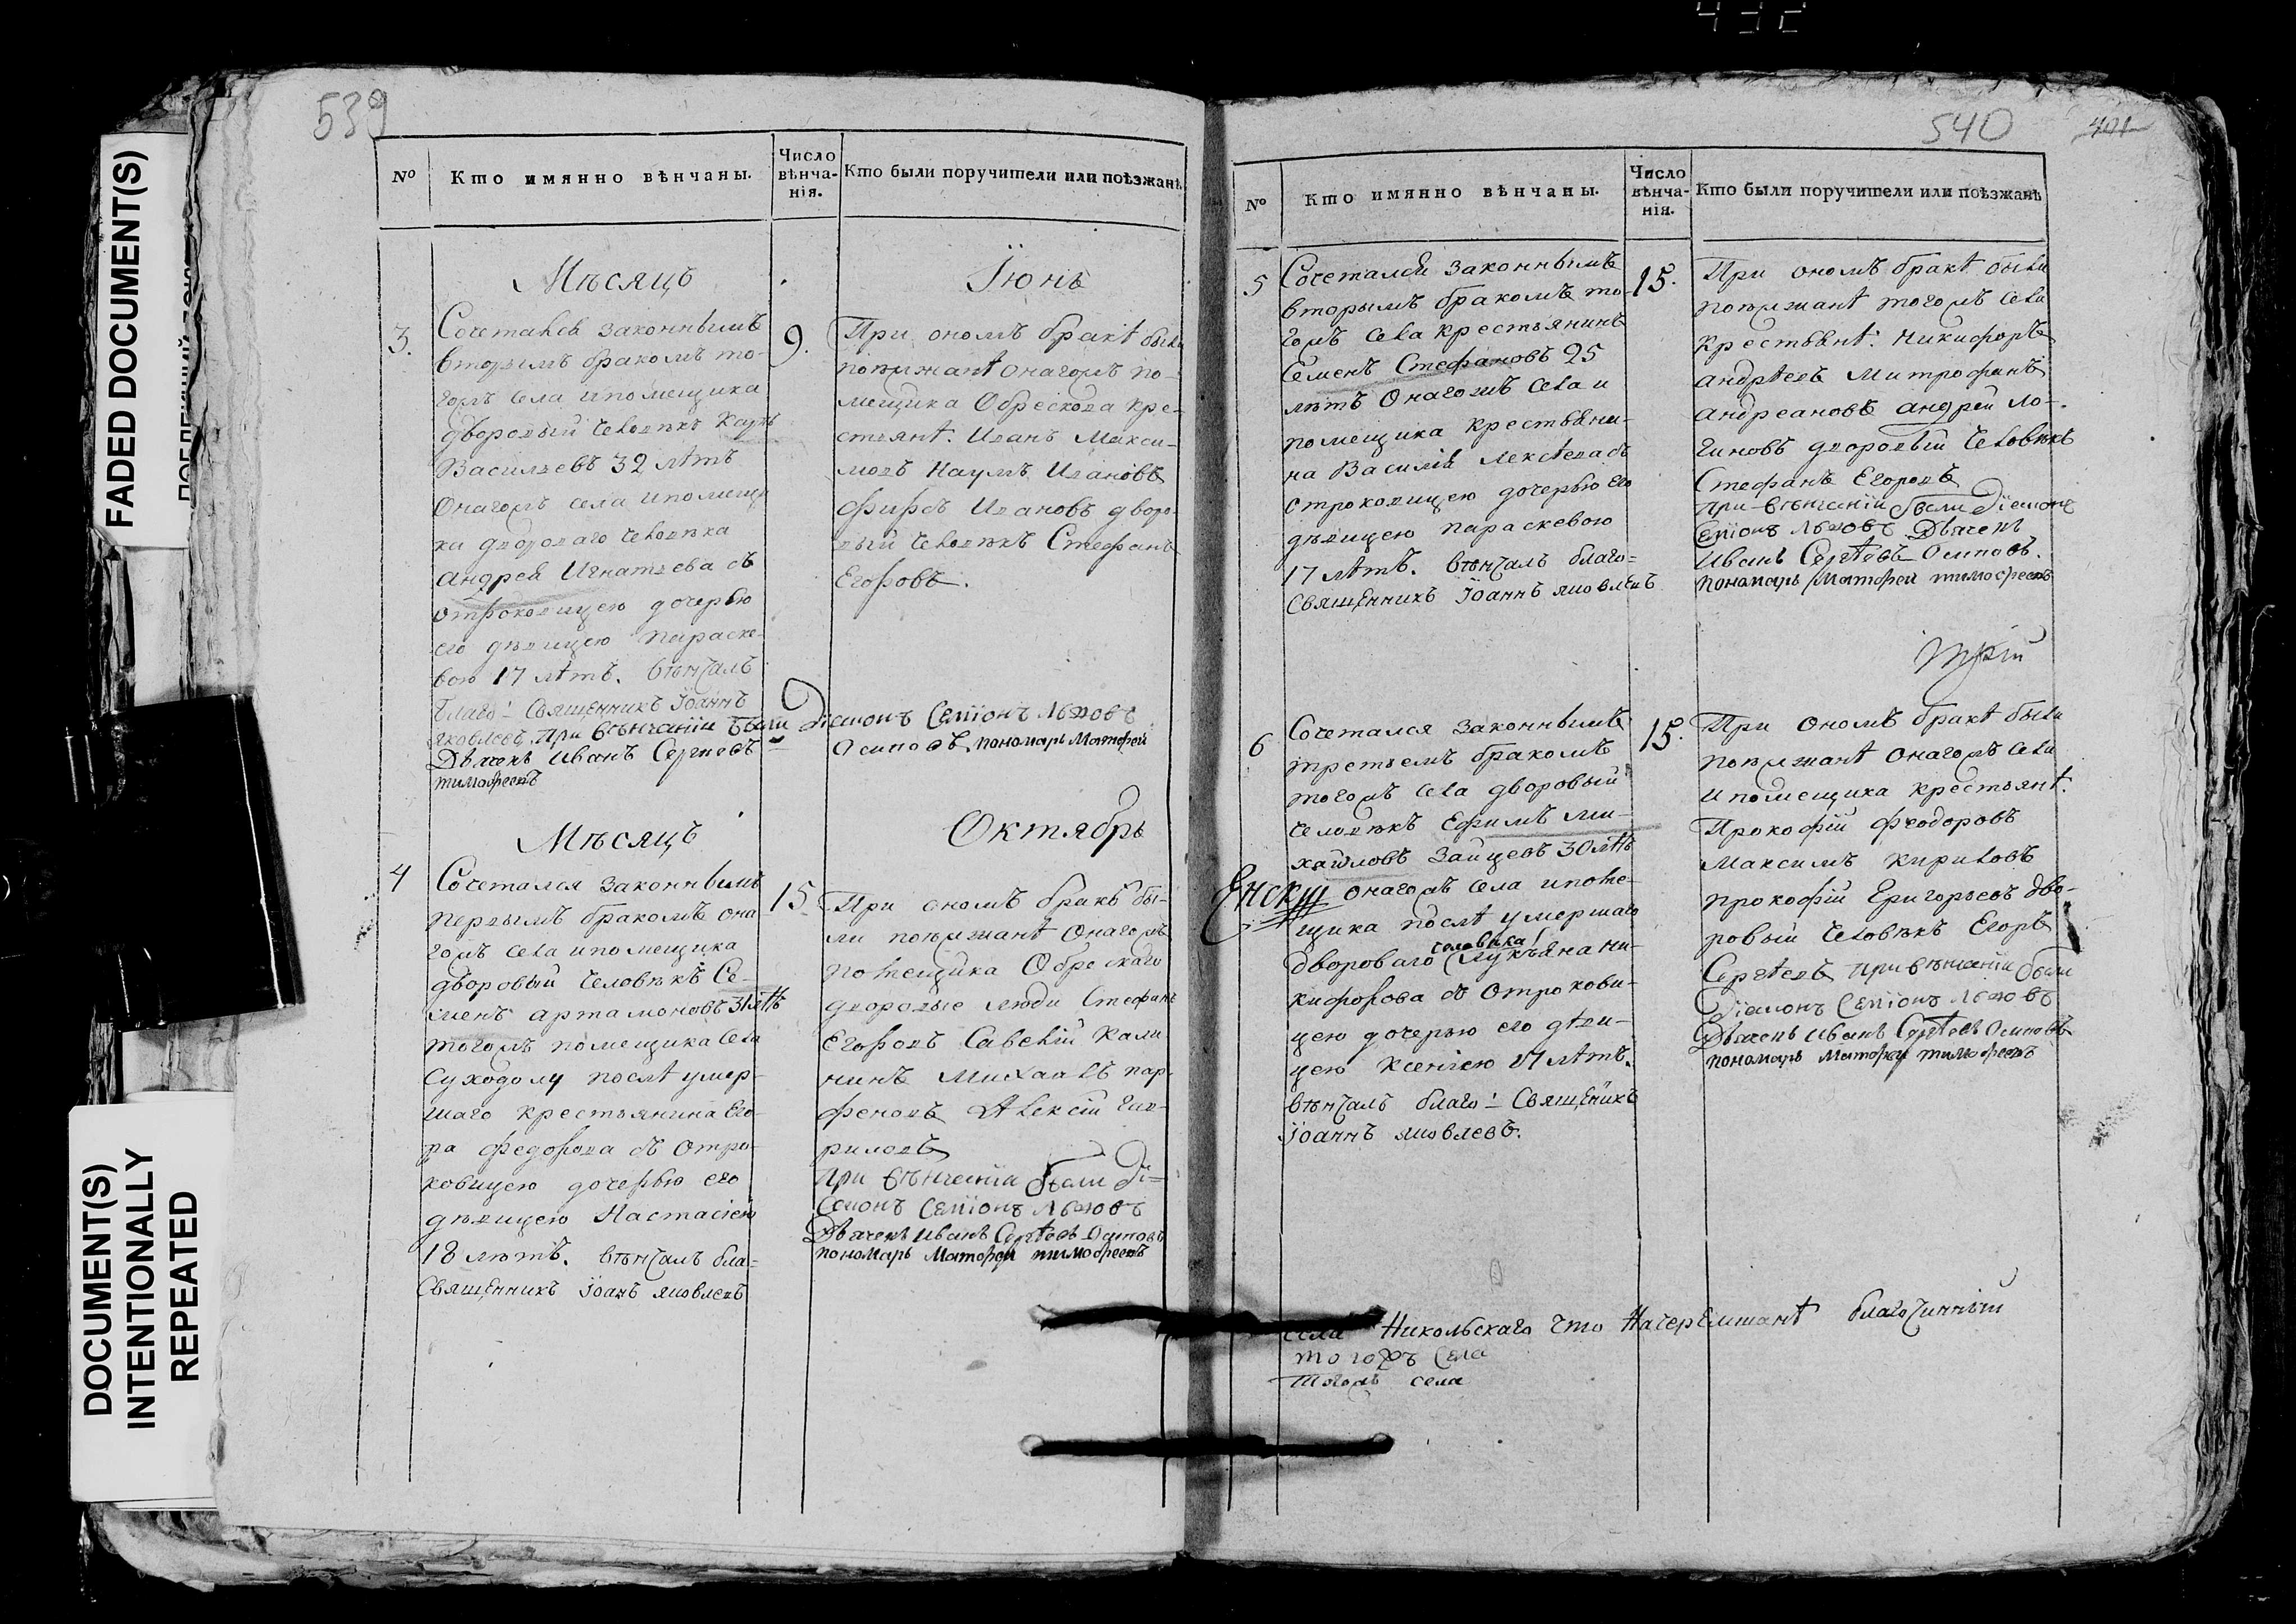 FADED DOCUMENT(S)
DOCUMENT(S)
INTENTIONALLY
REPEATED
539
№
Кто имянно вѣнчаны.
Число
вѣнча-
нія.
Кто были поручители или поѣзжанѣ
Мѣсяцъ
Іюнь
3.
Сочетался законнымъ
вторымъ бракомъ то-
гожъ села ипомещика
дворовый человѣкъ
Васильевъ 32 лѣтъ
онагожъ села ипомещи
ка двороваго человѣка
андрея Игнатьева съ
отроковицею дочерью
его дѣвицею параске-
вою 17 лѣтъ. вѣнчалъ
благо: Священникъ Іоаннъ
яковлевъ. при вѣнчаніи были Діаконъ Семіонъ Львовъ
Дьячекъ иванъ Сергѣевъ Осиповъ, пономарь Матфей
тимофеевъ
9.
При ономъ бракѣ были
поѣзжанѣ онагожъ по-
мещика Обрескова кре-
стьянѣ: Иванъ Макси-
мовъ Наумъ Ивановъ
фирсъ Ивановъ дворо-
вый человѣкъ Стефанъ
Егоровъ.
Мѣсяцъ
Октябрь
4
Сочетался законнымъ
первымъ бракомъ она
гожъ села ипомещика
дворовый человѣкъ Се-
менъ артамоновъ 31 лѣтъ
тогожъ помещика села
Суходолу послѣ умер-
шаго крестьянина Его-
ра федорова съ отро-
ковицею дочерью его
дѣвицею Настасіею
18 лѣтъ. вѣнчалъ бла-
Священникъ Іоанъ яковлевъ
15.
При ономъ бракѣ бы-
ли поѣзжанѣ онагожъ
помещика Обрескаго
дворовые люди Стефанъ
Егоровъ Савелій Кали
нинъ Михаалъ пар-
феновъ Алексій гав-
риловъ
при вѣнчаніи были Ді-
аконъ Семіонъ Львовъ
Дьячекъ иванъ Сергѣевъ Осиповъ
пономарь Матфей тимофеевъ
540
401
№
Кто имянно вѣнчаны.
Число
вѣнча-
нія.
Кто были поручители или поѣзжанѣ
5
Сочетался законнымъ
вторымъ бракомъ то-
гожъ села крестьянинъ
Семенъ Стефановъ 25
лѣтъ онагожъ села и
помещика крестьяни-
на Василія Лексѣева съ
отроковицею дочерью его
дѣвицею параскевою
17 лѣтъ. вѣнчалъ благо-
священникъ Іоаннъ яковлевъ
15.
При ономъ бракѣ были
поѣзжанѣ тогожъ села
крестьянѣ: никифоръ
андрѣевъ Митрофанъ
андреановъ андрей ло-
гиновъ дворовый человѣкъ
Стефанъ Егоровъ
при вѣнчаніи были Діаконъ
Семіонъ Львовъ Дьячекъ
иванъ Сергѣевъ Осиповъ.
пономарь Матфей тимофеевъ
6
Сочетался законнымъ
третьемъ бракомъ
тогожъ села дворовый
человѣкъ Ефимъ ми-
хайловъ Зайцевъ 30 лѣтъ
онагожъ села ипоме-
щика послѣ умершаго
человѣка
двороваго Лукьяна ни-
кифорова съ отрокови-
цею дочерью его дѣви-
цею Ксеніею 17 лѣтъ.
вѣнчалъ благо: Священникъ
Іоаннъ яковлевъ.
15.
При ономъ бракѣ были
поѣзжанѣ онагожъ села
ипомещика крестьянѣ:
Прокофій феодоровъ
Максимъ кириловъ
прокофій Григорьевъ дво-
ровый человѣкъ Егоръ
Сергѣевъ при вѣнчаніи были
Діаконъ Семіонъ Львовъ
Дьячекъ иванъ Сергѣевъ Осиповъ
пономарь Матфей тимофеевъ
села Никольскаго что Начеремшанѣ благочинній
тогожъ села
тогожъ села